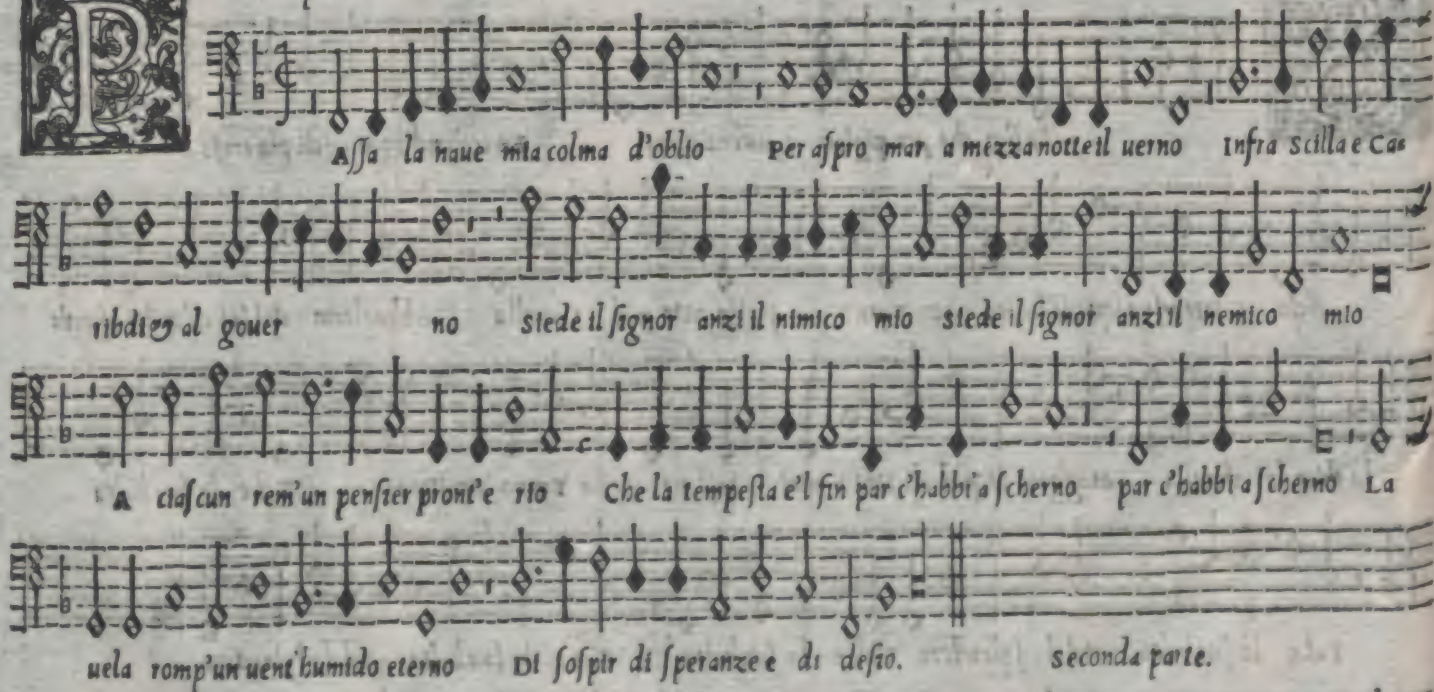 PAſſa la naue mia colma d'oblio Per aſpro mar a mezza notte il uerno Infra scilla e Ca=
ribdi & al gouer no siede il ſignor anzi il nimico mio siede il ſignor anzi il nemico mio
A ciaſcun rem'un penſier pront'e rio Che la tempeſta e'l fin par c'habbi'a ſcherno par c'habbi a ſcherno La
uela romp'un uent'humido eterno Di ſoſpir di ſperanze e di deſio. seconda parte.